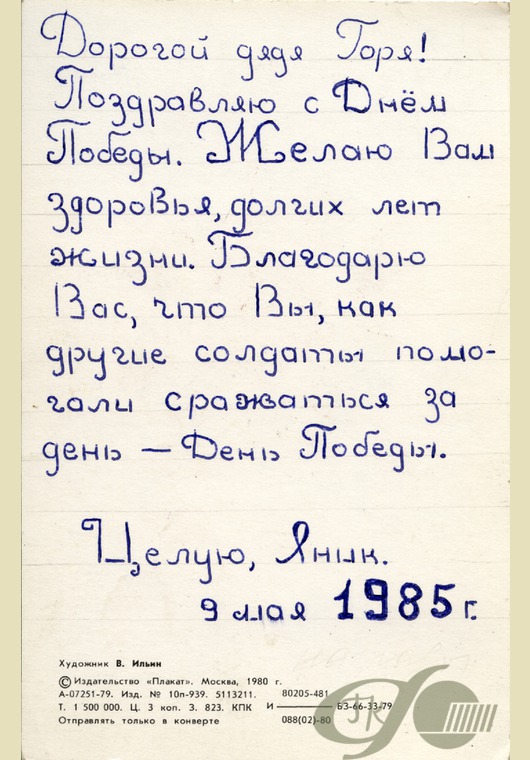 Дорогой дядя Горя!
Поздравляю с Днём
Победы. Желаю Вам
здоровья, долгих лет
жизни. Благодарю
Вас, что Вы, как
другие солдаты помо-
гали сражаться за
день — День Победы.
Целую, Яник.
9 мая 1985 г.
Художник В. Ильин
© Издательство «Плакат». Москва, 1980 г.
А-07251-79. Изд. № 10п-939. 5113211. 80205-481
Т. 1 500 000. Ц. 3 коп. З. 823. КПК И — БЗ-66-33-79
Отправлять только в конверте 088(02)-80